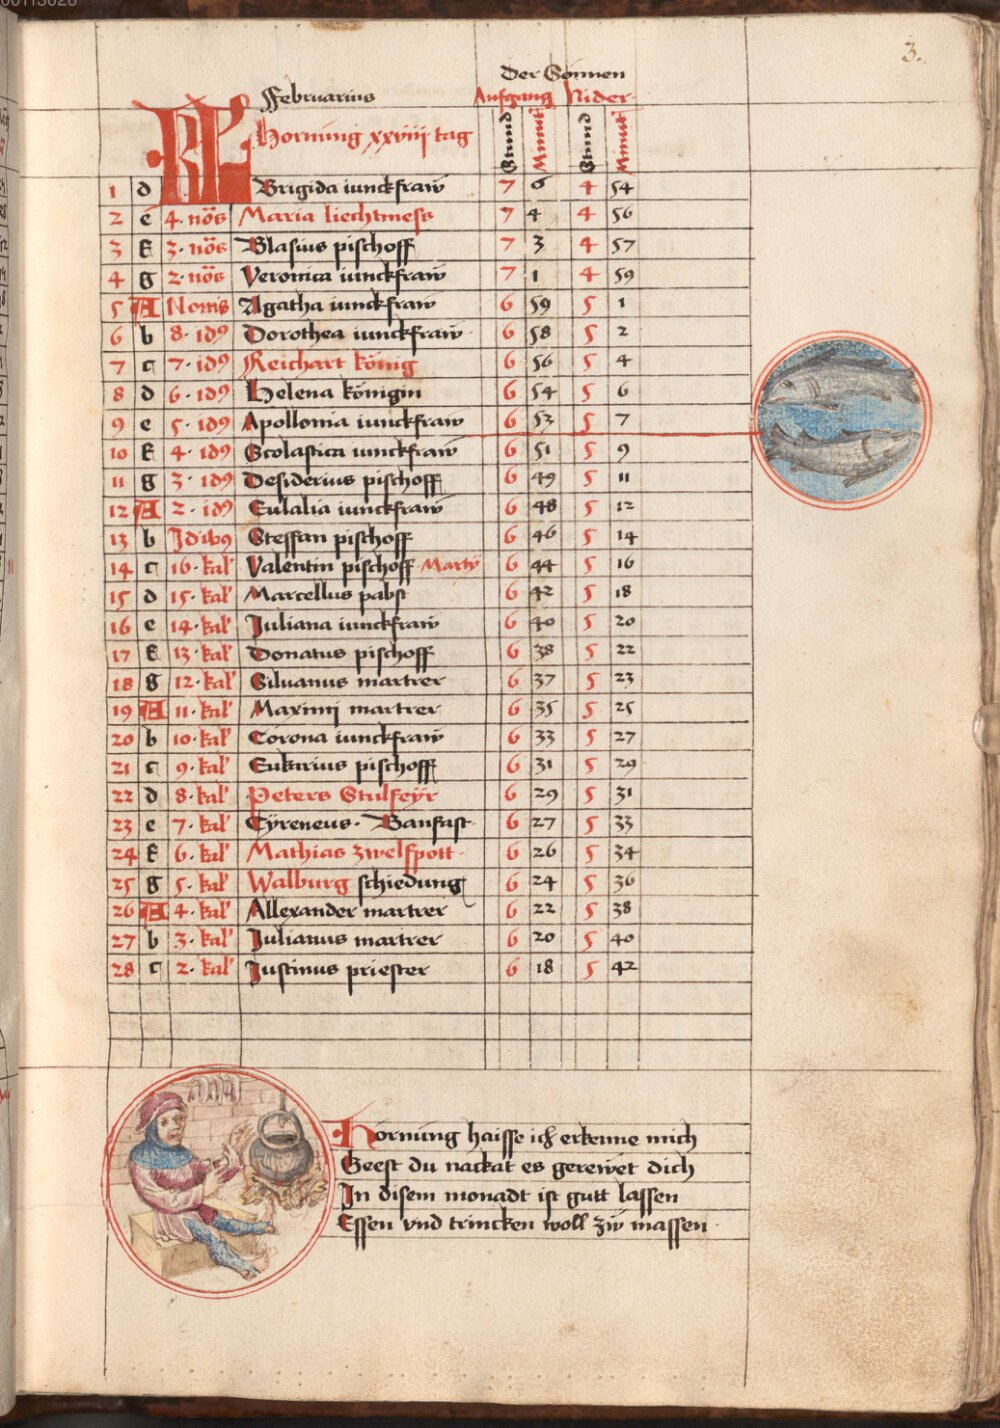 00113028
3.
Der Sonnen
Februarius Aufgang Nider
KL Hornung xxviij tag Stund Minut Stund Minut
1 d Brigida iunckfraw 7 6 4 54
2 e 4· noˉs Maria liechtmess 7 4 4 56
3 f 3· noˉs Blasius pischoff 7 3 4 57
4 g 2· noˉs Veronica iunckfraw 7 1 4 59
5 A Nonis Agatha iunckfraw 6 59 5 1
6 b 8· idꝰ Dorothea iunckfraw 6 58 5 2
7 c 7· idꝰ Reichart könig 6 56 5 4
8 d 6· idꝰ Helena königin 6 54 5 6
9 e 5· idꝰ Apollonia iunckfraw 6 53 5 7
10 f 4· idꝰ Scolastica iunckfraw 6 51 5 9
11 g 3· idꝰ Desiderius pischoff 6 49 5 11
12 A 2· idꝰ Eulalia iunckfraw 6 48 5 12
13 b Idibꝰ Steffan pischoff 6 46 5 14
14 c 16· kal' Valentin pischoff· Marty 6 44 5 16
15 d 15· kal' Marcellus pabst 6 42 5 18
16 e 14· kal' Juliana iunckfraw 6 40 5 20
17 f 13· kal' Donatus pischoff 6 38 5 22
18 g 12· kal' Siluanus martrer 6 37 5 23
19 A 11· kal' Maximj martrer 6 35 5 25
20 b 10· kal' Corona iunckfraw 6 33 5 27
21 c 9· kal' Eukarius pischoff 6 31 5 29
22 d 8· kal' Peters Stulfeÿr 6 29 5 31
23 e 7· kal' Cÿreneus· Banfast 6 27 5 33
24 f 6· kal' Mathias zwelfpott· 6 26 5 34
25 g 5· kal' Walburg schiedung 6 24 5 36
26 A 4· kal' Allexander martrer 6 22 5 38
27 b 3· kal' Julianus martrer 6 20 5 40
28 c 2· kal' Justinus priester 6 18 5 42
Hornung haisse ich erkenne mich
Geest du nackat es gerewet dich
In disem monadt ist gutt lassen
Essen vnd trincken woll zw massen·